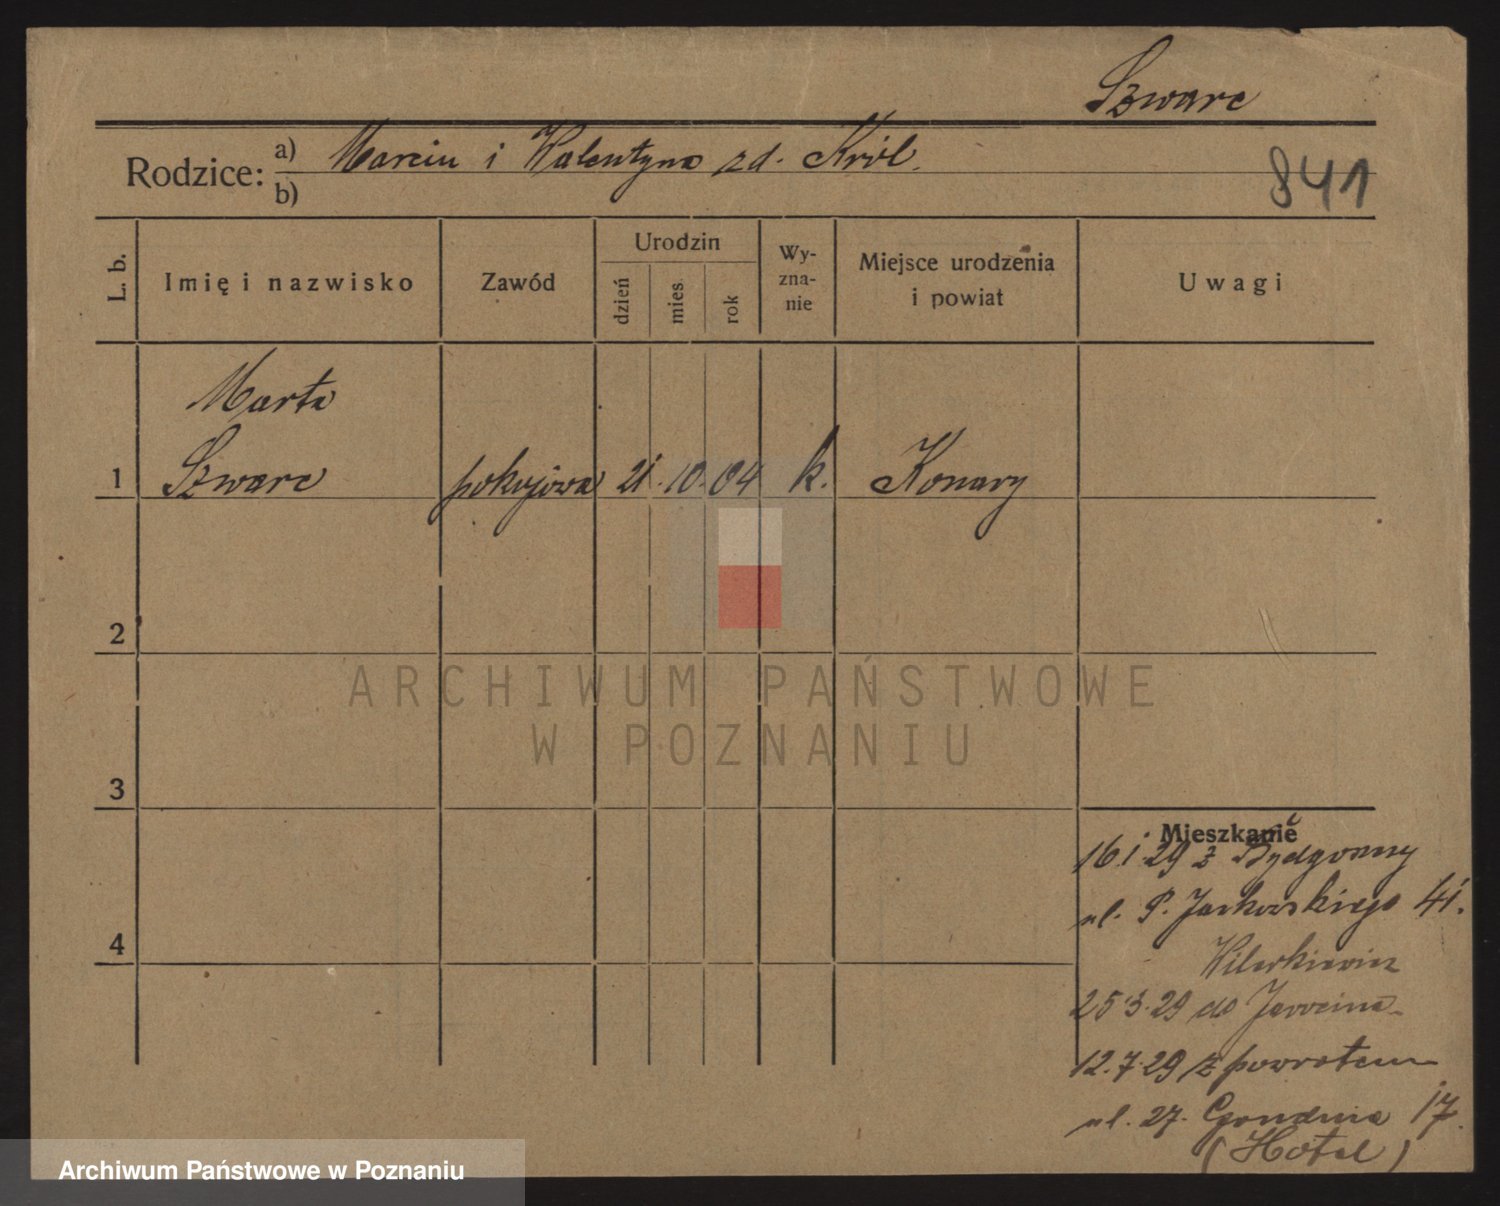 Szwarc
Rodzice: a) Marcin i Walentyna zd. Król.
b)
841
L. b.
Imię i nazwisko
Zawód
Urodzin
dzień
mies.
rok
Wy-
zna-
nie
Miejsce urodzenia
i powiat
Uwagi
Marta
1 Szwarc pokojowa 21. 10. 04 k. Konary
2
ARCHIWUM PAŃSTWOWE
W POZNANIU
3
Mieszkanie
16.1.29 z Bydgoszczy
ul. P. Jackowskiego 41.
4
25.3.29 do Jarocina
12.7.29 z powrotem
ul. 27. Grudnia 17.
(Hotel)
Archiwum Państwowe w Poznaniu